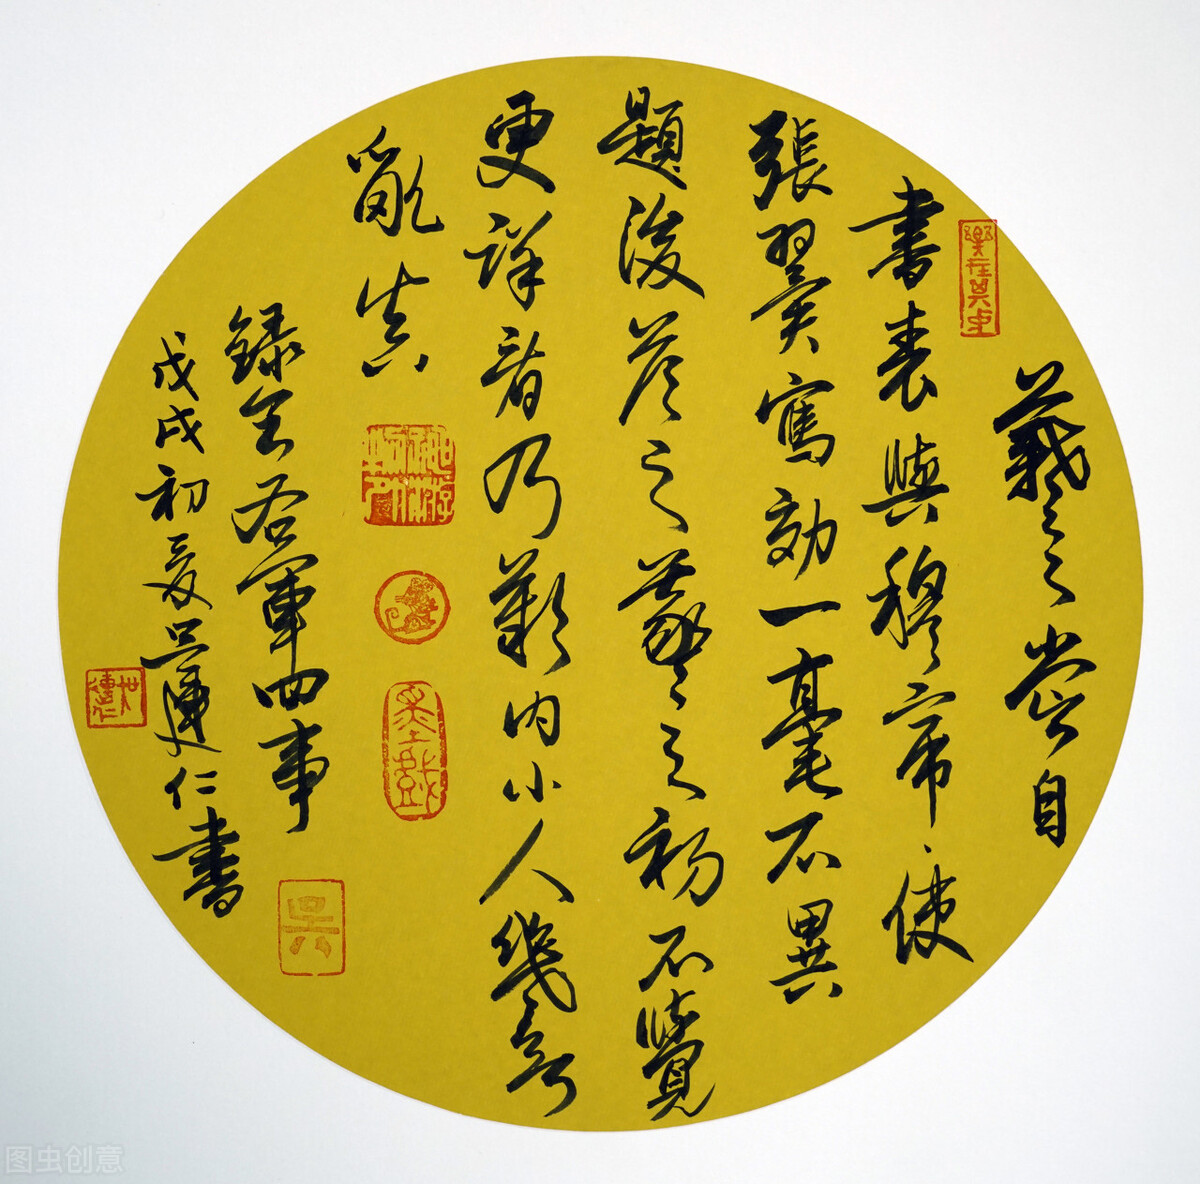 樂在其中
羲之嘗自
書表與穆帝使
張翼寫効一毫不異
題後答之羲之初不覺
更詳看乃歎曰小人幾欲
亂真
墨戲
錄王右軍四事
吳
戊戌初夏吳仁書
图虫创意